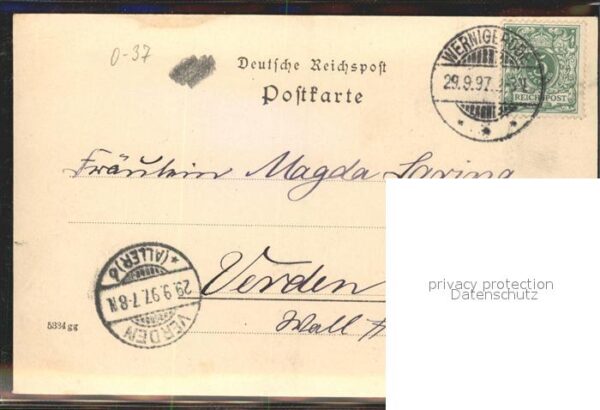 0-37
Deutsche Reichspost
Postkarte
WERNIGERODE
29.9.97.
REICHSPOST
Fräulein Magda
Verden
Wall
VERDEN
* (ALLER) *
29.9.97.7-8N.
5334gg
privacy protection
Datenschutz